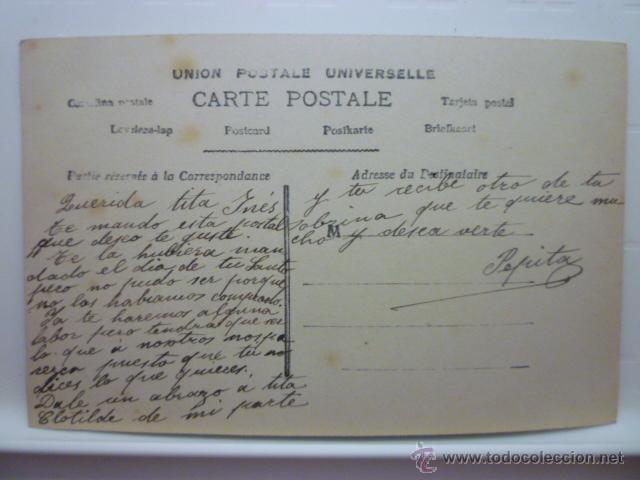 UNION POSTALE UNIVERSELLE
Cartolina postale CARTE POSTALE Tarjeta postal
Levelezo-lap Postcard Postkarte Briefkaart
Partie réservée à la Correspondance
Adresse du Destinataire
Querida tita Inés
te mando esta postal
que deseo te guste.
Te la hubiera man
dado el dia de tu Santo
pero no pudo ser porque
no las habiamos comprado.
Ya te haremos alguna
labor pero tendra que ser
lo que á nosotros nos pa
rezca puesto que tu no
dices lo que quieres.
Dale un abrazo á tita
Clotilde de mi parte
y tu recibe otro de tu
sobrina que te quiere mu
cho y desea verte
M
Pepita
todocoleccion
© www.todocoleccion.net